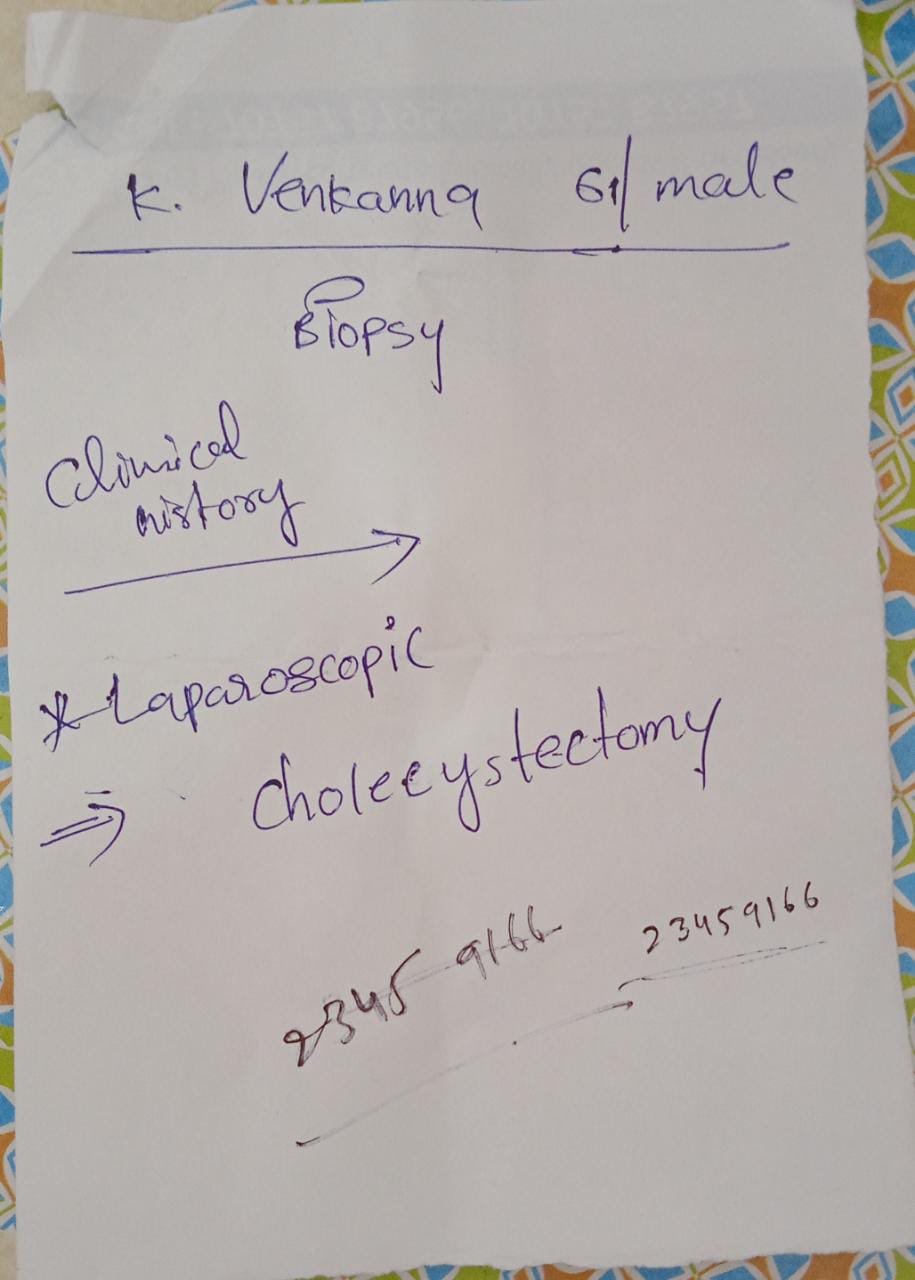 K. Venkanna 61/male
Biopsy
Clinical
history
* Laparoscopic
⇒ Cholecystectomy
2345 9166
23459166